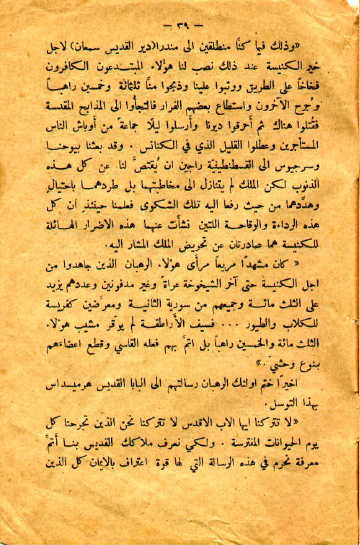 — ٣٩ —
«وذلك فيما كنا منطلقين الى مندرا (دير القديس سمعان) لاجل
خير الكنيسة عند ذلك نصب لنا هؤلاء المبتدعون الكافرون
فخاخاً على الطريق ووثبوا علينا وذبحوا منا ثلثمائة وخمسين راهباً
وجرح الآخرون واستطاع بعضهم الفرار فالتجأوا الى المذابح المقدسة
فقُتلوا هناك ثم أحرقوا ديونا وأرسلوا ليلاً جماعةً من أوباش الناس
المستأجرين وعطلوا القليل الذي في الكنائس . وقد بعثنا بيوحنا
وسرجيوس الى القسطنطينية راجين ان يُقتصَّ لنا عن كل هذه
الذنوب لكن الملك لم يتنازل الى مخاطبتهما بل طردهما باحتيال
وهدَّدهما من حيث رفعا اليه تلك الشكوى فعلمنا حينئذ ان كل
هذه الرداءة والوقاحة اللتين نشأت عنهما هذه الاضرار الهائلة
للكنيسة هما صادرتان عن تحريض الملك المشار اليه.
« كان مشهداً مريعاً مرأى هؤلاء الرهبان الذين جاهدوا من
اجل الكنيسة حتى آخر الشيخوخة عراة وغير مدفونين وعددهم يزيد
على الثلث مائة وجميعهم من سورية الثانية ومعرَّضين كفريسة
للكلاب والطيور ... فسيف الأراطقة لم يوقّر مشيب هؤلاء
الثلث مائة والخمسين راهباً بل اتمَّ بهم فعله القاسي وقطع اعضاءهم
بنوع وحشيّ .»
اخيراً ختم اولئك الرهبان رسالتهم الى البابا القديس هرميسداس
بهذا التوسل.
« لا تتركنا ايها الاب الاقدس لا تتركنا نحن الذين تجرحنا كل
يوم الحيوانات المفترسة . ولكي تعرف ملاكك القديس بنا أتمَّ
معرفة نحرم في هذه الرسالة التي لها قوة اعتراف بالايمان كل الذين